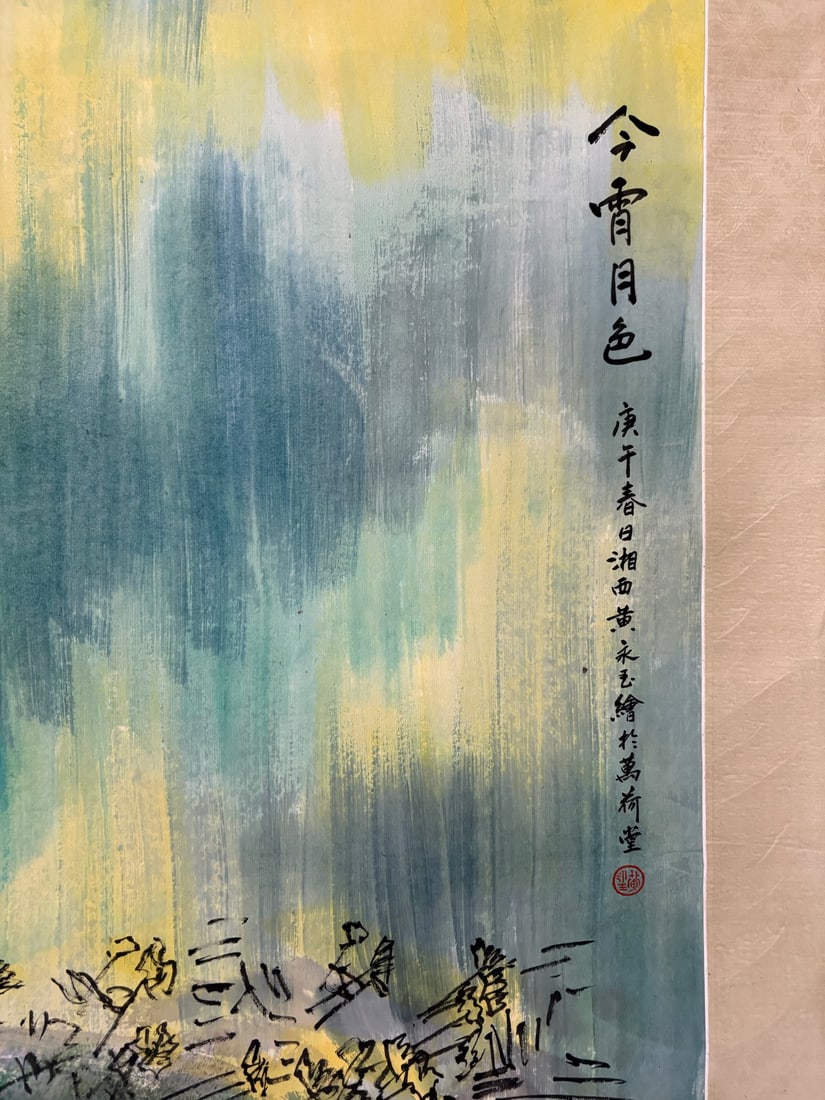 今宵月色
庚午春日湘西黄永玉繪於萬荷堂